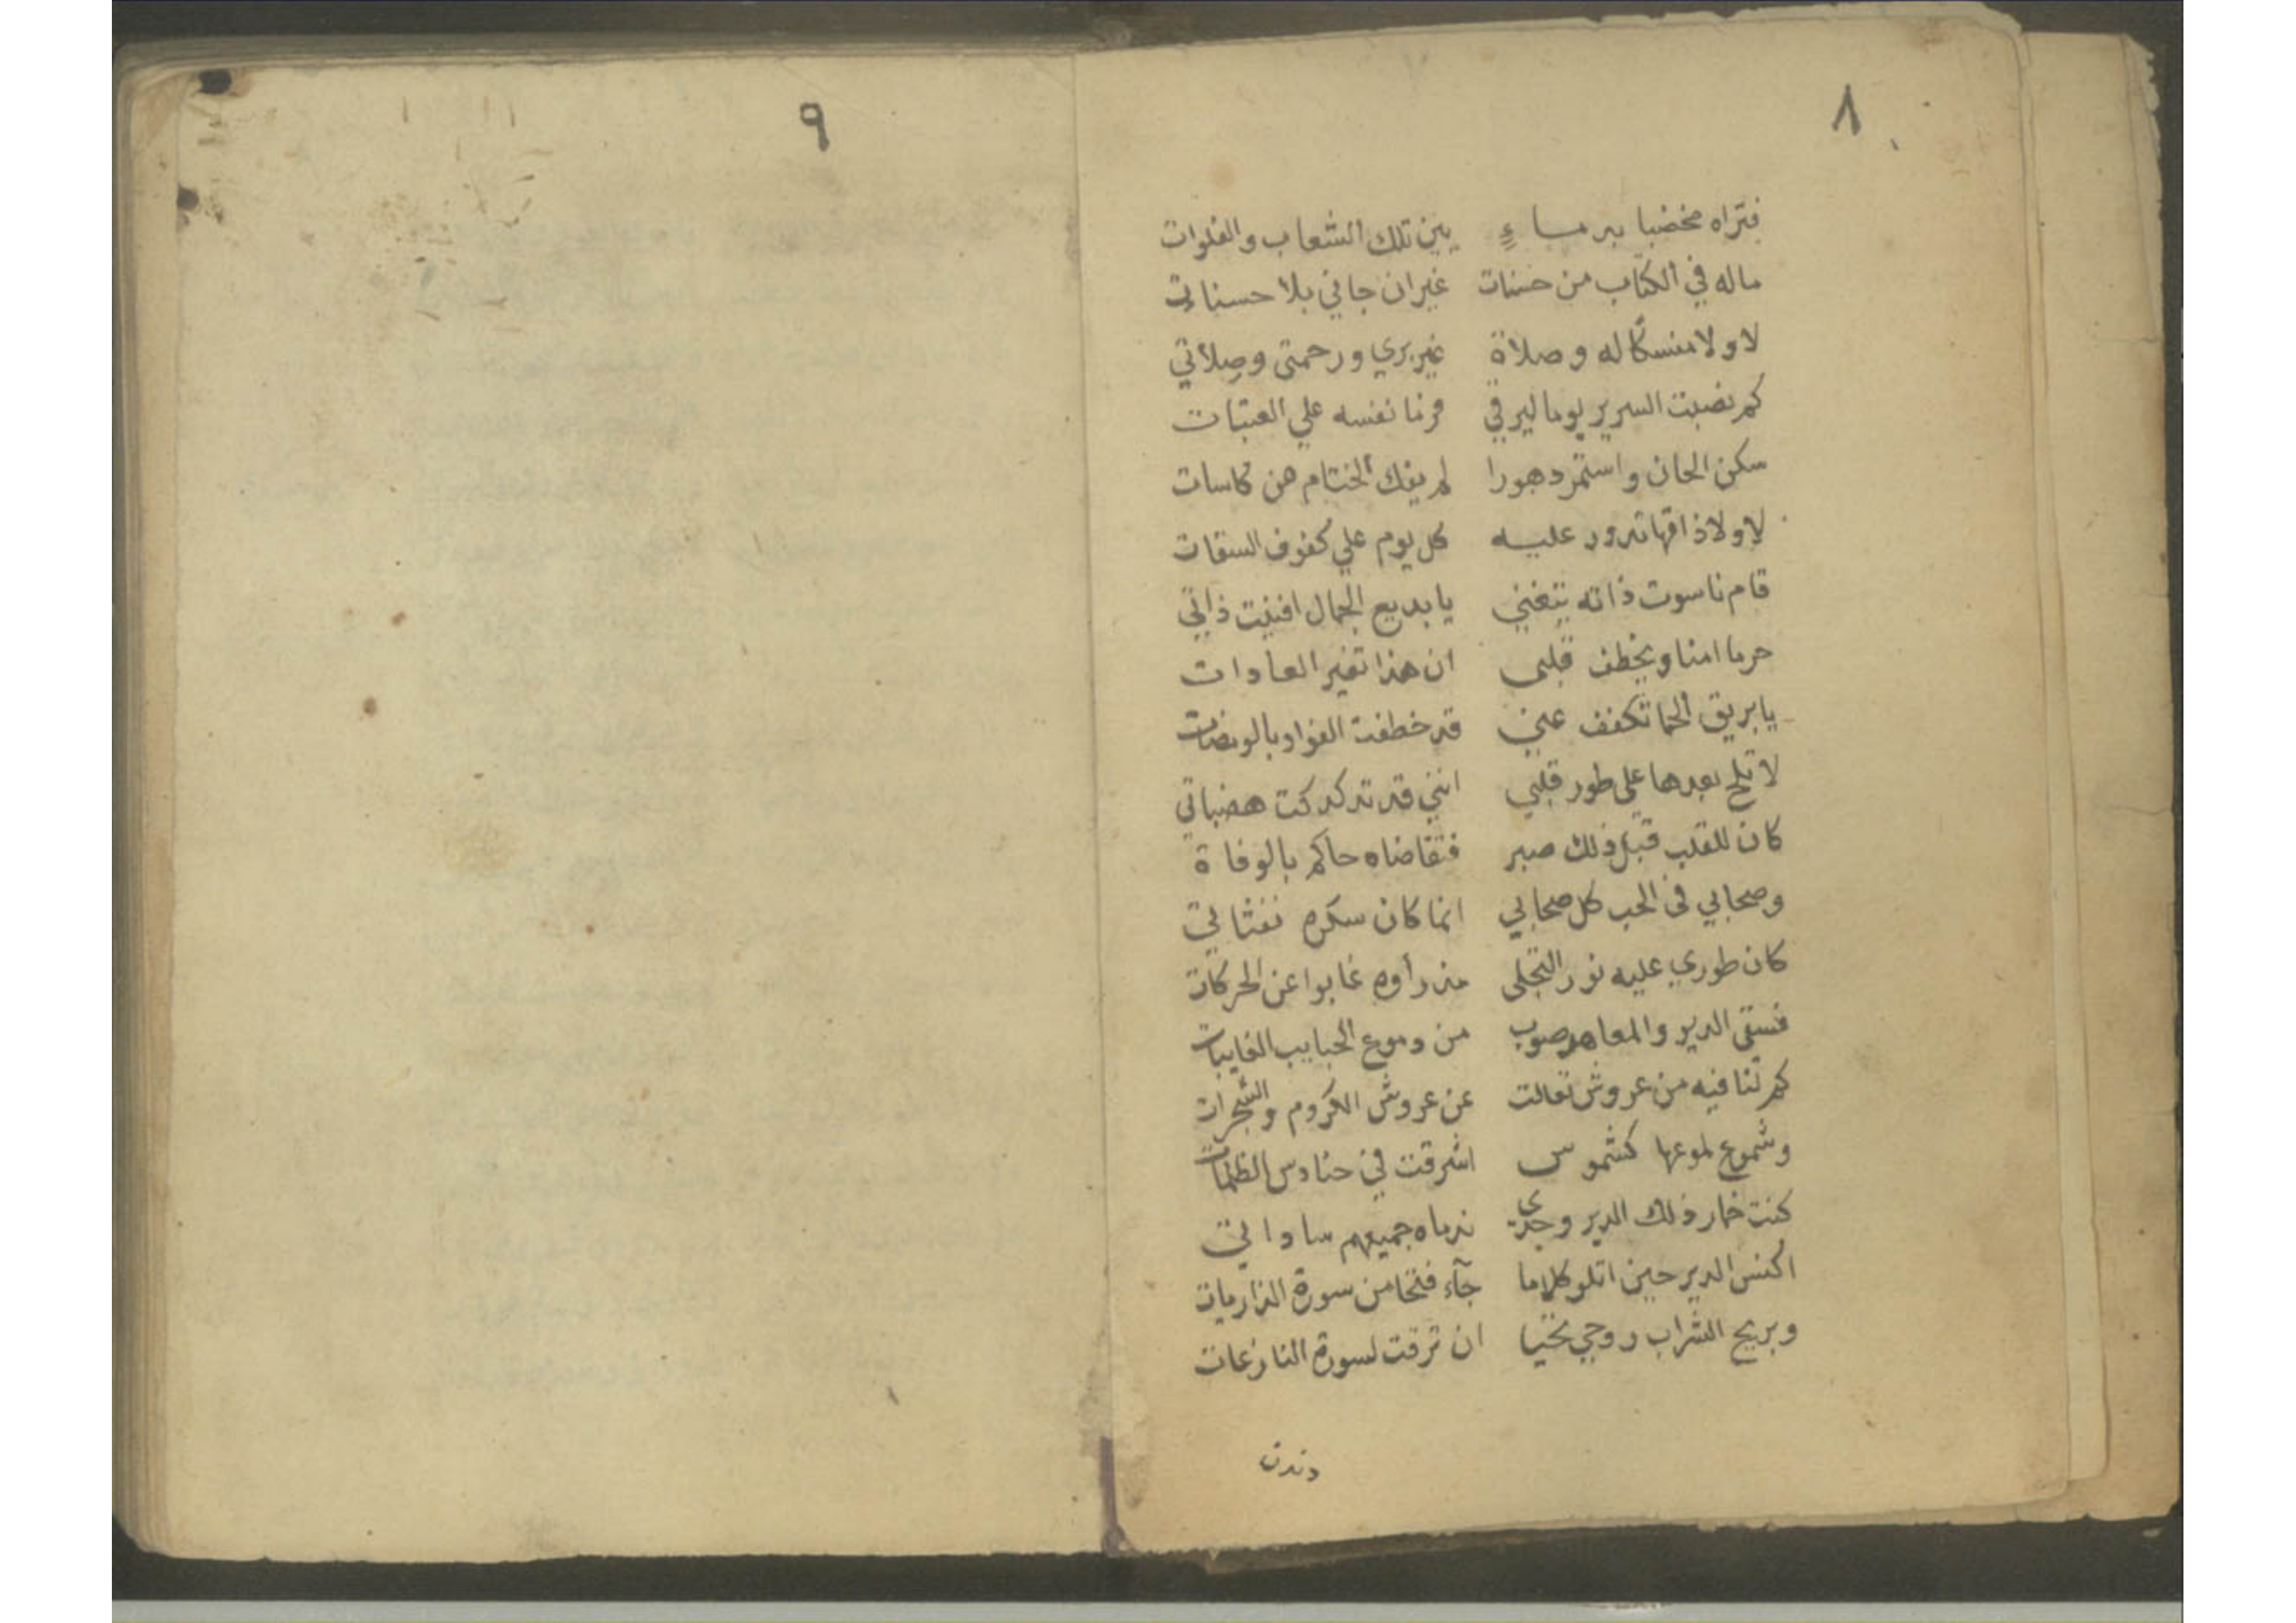 ٨
فتراه مخضبا بدماءٍ بين تلك الشعاب والفلوات
ماله في الكتاب من حسنات غيران جاني بلا حسنات
لاولا منسكا له وصلاة غير بري ورحمتى وصِلاتي
كم نصبت السرير يوما ليرقي فرنا نفسه علي العتبات
سكن الحان واستمر دهورا لم يفك الختام من كاسات
لاولا ذاقها تدور عليه كل يوم علي كفوف السقات
قام ناسوت ذاته يتغني يا بديع الجمال افنيت ذاتي
حرما امنا ويخطف قلبى ان هذا تغير العادات
يابريق الحما تكفف عني قد خطفت الفواد بالومضات
لا تلح بعدها على طور قلبي انني قد تدكدكت هضباتي
كان للقلب قبل ذلك صبر فتقاضاه حاكم بالوفاة
وصحابي فى الحب كل صحابي انما كان سكره نفثاتي
كان طوري عليه نور التجلى مذ رأوه غابوا عن الحركات
فسقى الدير والمعاهد صوب من دموع الحبايب الغايبات
كم لنا فيه من عروش تعالت عن عروش الكروم والشجرات
وشموع لموعها كشموس اشرقت في حنادس الظلمات
كنت خمار ذلك الدير وحدى ندماه جميعهم ساداتي
اكنس الدير حين اتلو كلاما جآء فتحا من سورة الذاريات
وبريح الشراب روحي تحيا ان ترقت لسورة النازعات
دندن
٩